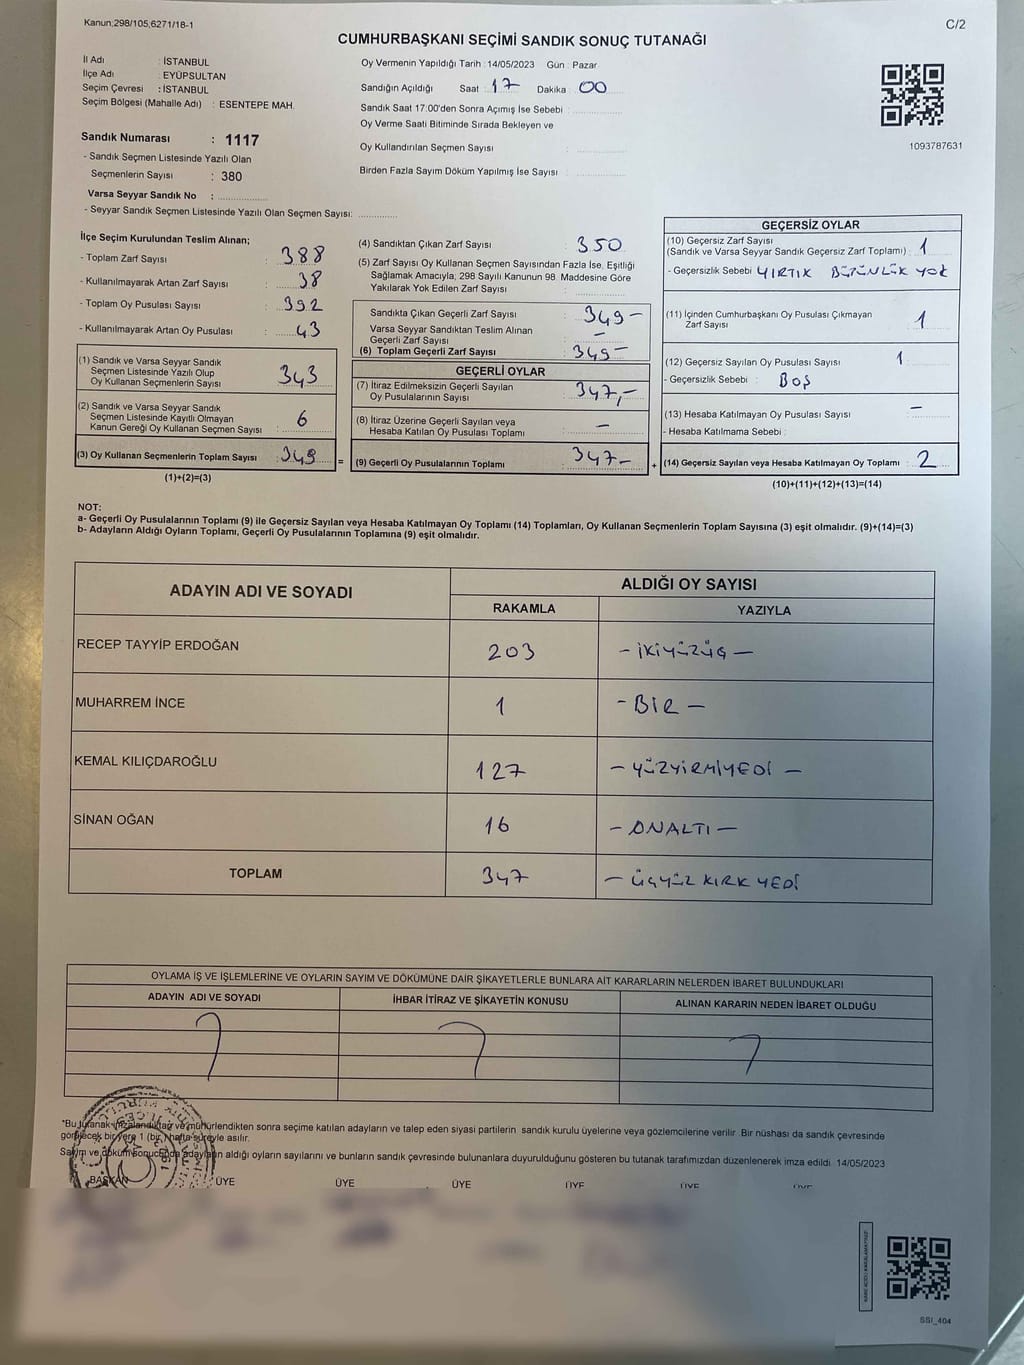 Kanun,298/105,6271/18-1
C/2
CUMHURBAŞKANI SEÇİMİ SANDIK SONUÇ TUTANAĞI
İl Adı : İSTANBUL
İlçe Adı : EYÜPSULTAN
Seçim Çevresi : İSTANBUL
Seçim Bölgesi (Mahalle Adı) : ESENTEPE MAH.
Sandık Numarası : 1117
- Sandık Seçmen Listesinde Yazılı Olan
Seçmenlerin Sayısı : 380
Varsa Seyyar Sandık No :
- Seyyar Sandık Seçmen Listesinde Yazılı Olan Seçmen Sayısı:
Oy Vermenin Yapıldığı Tarih : 14/05/2023 Gün : Pazar
Sandığın Açıldığı Saat : 17 Dakika : 00
Sandık Saat 17:00'den Sonra Açımış İse Sebebi :
Oy Verme Saati Bitiminde Sırada Bekleyen ve
Oy Kullandırılan Seçmen Sayısı :
Birden Fazla Sayım Döküm Yapılmış İse Sayısı :
1093787631
İlçe Seçim Kurulundan Teslim Alınan;
- Toplam Zarf Sayısı : 388
- Kullanılmayarak Artan Zarf Sayısı : 38
- Toplam Oy Pusulası Sayısı : 392
- Kullanılmayarak Artan Oy Pusulası : 43
(1) Sandık ve Varsa Seyyar Sandık
Seçmen Listesinde Yazılı Olup
Oy Kullanan Seçmenlerin Sayısı : 343
(2) Sandık ve Varsa Seyyar Sandık
Seçmen Listesinde Kayıtlı Olmayan
Kanun Gereği Oy Kullanan Seçmen Sayısı : 6
(3) Oy Kullanan Seçmenlerin Toplam Sayısı : 349 =
(1)+(2)=(3)
(4) Sandıktan Çıkan Zarf Sayısı : 350
(5) Zarf Sayısı Oy Kullanan Seçmen Sayısından Fazla İse, Eşitliği
Sağlamak Amacıyla; 298 Sayılı Kanunun 98. Maddesine Göre
Yakılarak Yok Edilen Zarf Sayısı :
Sandıkta Çıkan Geçerli Zarf Sayısı : 349 -
Varsa Seyyar Sandıktan Teslim Alınan
Geçerli Zarf Sayısı : -
(6) Toplam Geçerli Zarf Sayısı : 349 -
GEÇERLİ OYLAR
(7) İtiraz Edilmeksizin Geçerli Sayılan
Oy Pusulalarının Sayısı : 347,-
(8) İtiraz Üzerine Geçerli Sayılan veya
Hesaba Katılan Oy Pusulası Toplamı : -
(9) Geçerli Oy Pusulalarının Toplamı : 347 - +
GEÇERSİZ OYLAR
(10) Geçersiz Zarf Sayısı
(Sandık ve Varsa Seyyar Sandık Geçersiz Zarf Toplamı) : 1
- Geçersizlik Sebebi : YIRTIK BÜTÜNLÜK YOK
(11) İçinden Cumhurbaşkanı Oy Pusulası Çıkmayan
Zarf Sayısı : 1
(12) Geçersiz Sayılan Oy Pusulası Sayısı : 1
- Geçersizlik Sebebi : BOŞ
(13) Hesaba Katılmayan Oy Pusulası Sayısı : -
- Hesaba Katılmama Sebebi :
(14) Geçersiz Sayılan veya Hesaba Katılmayan Oy Toplamı : 2
(10)+(11)+(12)+(13)=(14)
NOT:
a- Geçerli Oy Pusulalarının Toplamı (9) ile Geçersiz Sayılan veya Hesaba Katılmayan Oy Toplamı (14) Toplamları, Oy Kullanan Seçmenlerin Toplam Sayısına (3) eşit olmalıdır. (9)+(14)=(3)
b- Adayların Aldığı Oyların Toplamı, Geçerli Oy Pusulalarının Toplamına (9) eşit olmalıdır.
ADAYIN ADI VE SOYADI ALDIĞI OY SAYISI
RAKAMLA YAZIYLA
RECEP TAYYİP ERDOĞAN 203 - İKİYÜZÜÇ -
MUHARREM İNCE 1 - BİR -
KEMAL KILIÇDAROĞLU 127 - YÜZYİRMİYEDİ -
SİNAN OĞAN 16 - ONALTI -
TOPLAM 347 - ÜÇYÜZ KIRK YEDİ
OYLAMA İŞ VE İŞLEMLERİNE VE OYLARIN SAYIM VE DÖKÜMÜNE DAİR ŞİKAYETLERLE BUNLARA AİT KARARLARIN NELERDEN İBARET BULUNDUKLARI
ADAYIN ADI VE SOYADI İHBAR İTİRAZ VE ŞİKAYETİN KONUSU ALINAN KARARIN NEDEN İBARET OLDUĞU
*Bu tutanak imzalandıktan ve mühürlendikten sonra seçime katılan adayların ve talep eden siyasi partilerin sandık kurulu üyelerine veya gözlemcilerine verilir. Bir nüshası da sandık çevresinde
görülecek bir yere 1 (bir) hafta süreyle asılır.
Sayım ve döküm sonucunda adayların aldığı oyların sayılarını ve bunların sandık çevresinde bulunanlara duyurulduğunu gösteren bu tutanak tarafımızdan düzenlenerek imza edildi. 14/05/2023
BAŞKAN ÜYE ÜYE ÜYE ÜYE ÜYE ÜYE
SSI_404